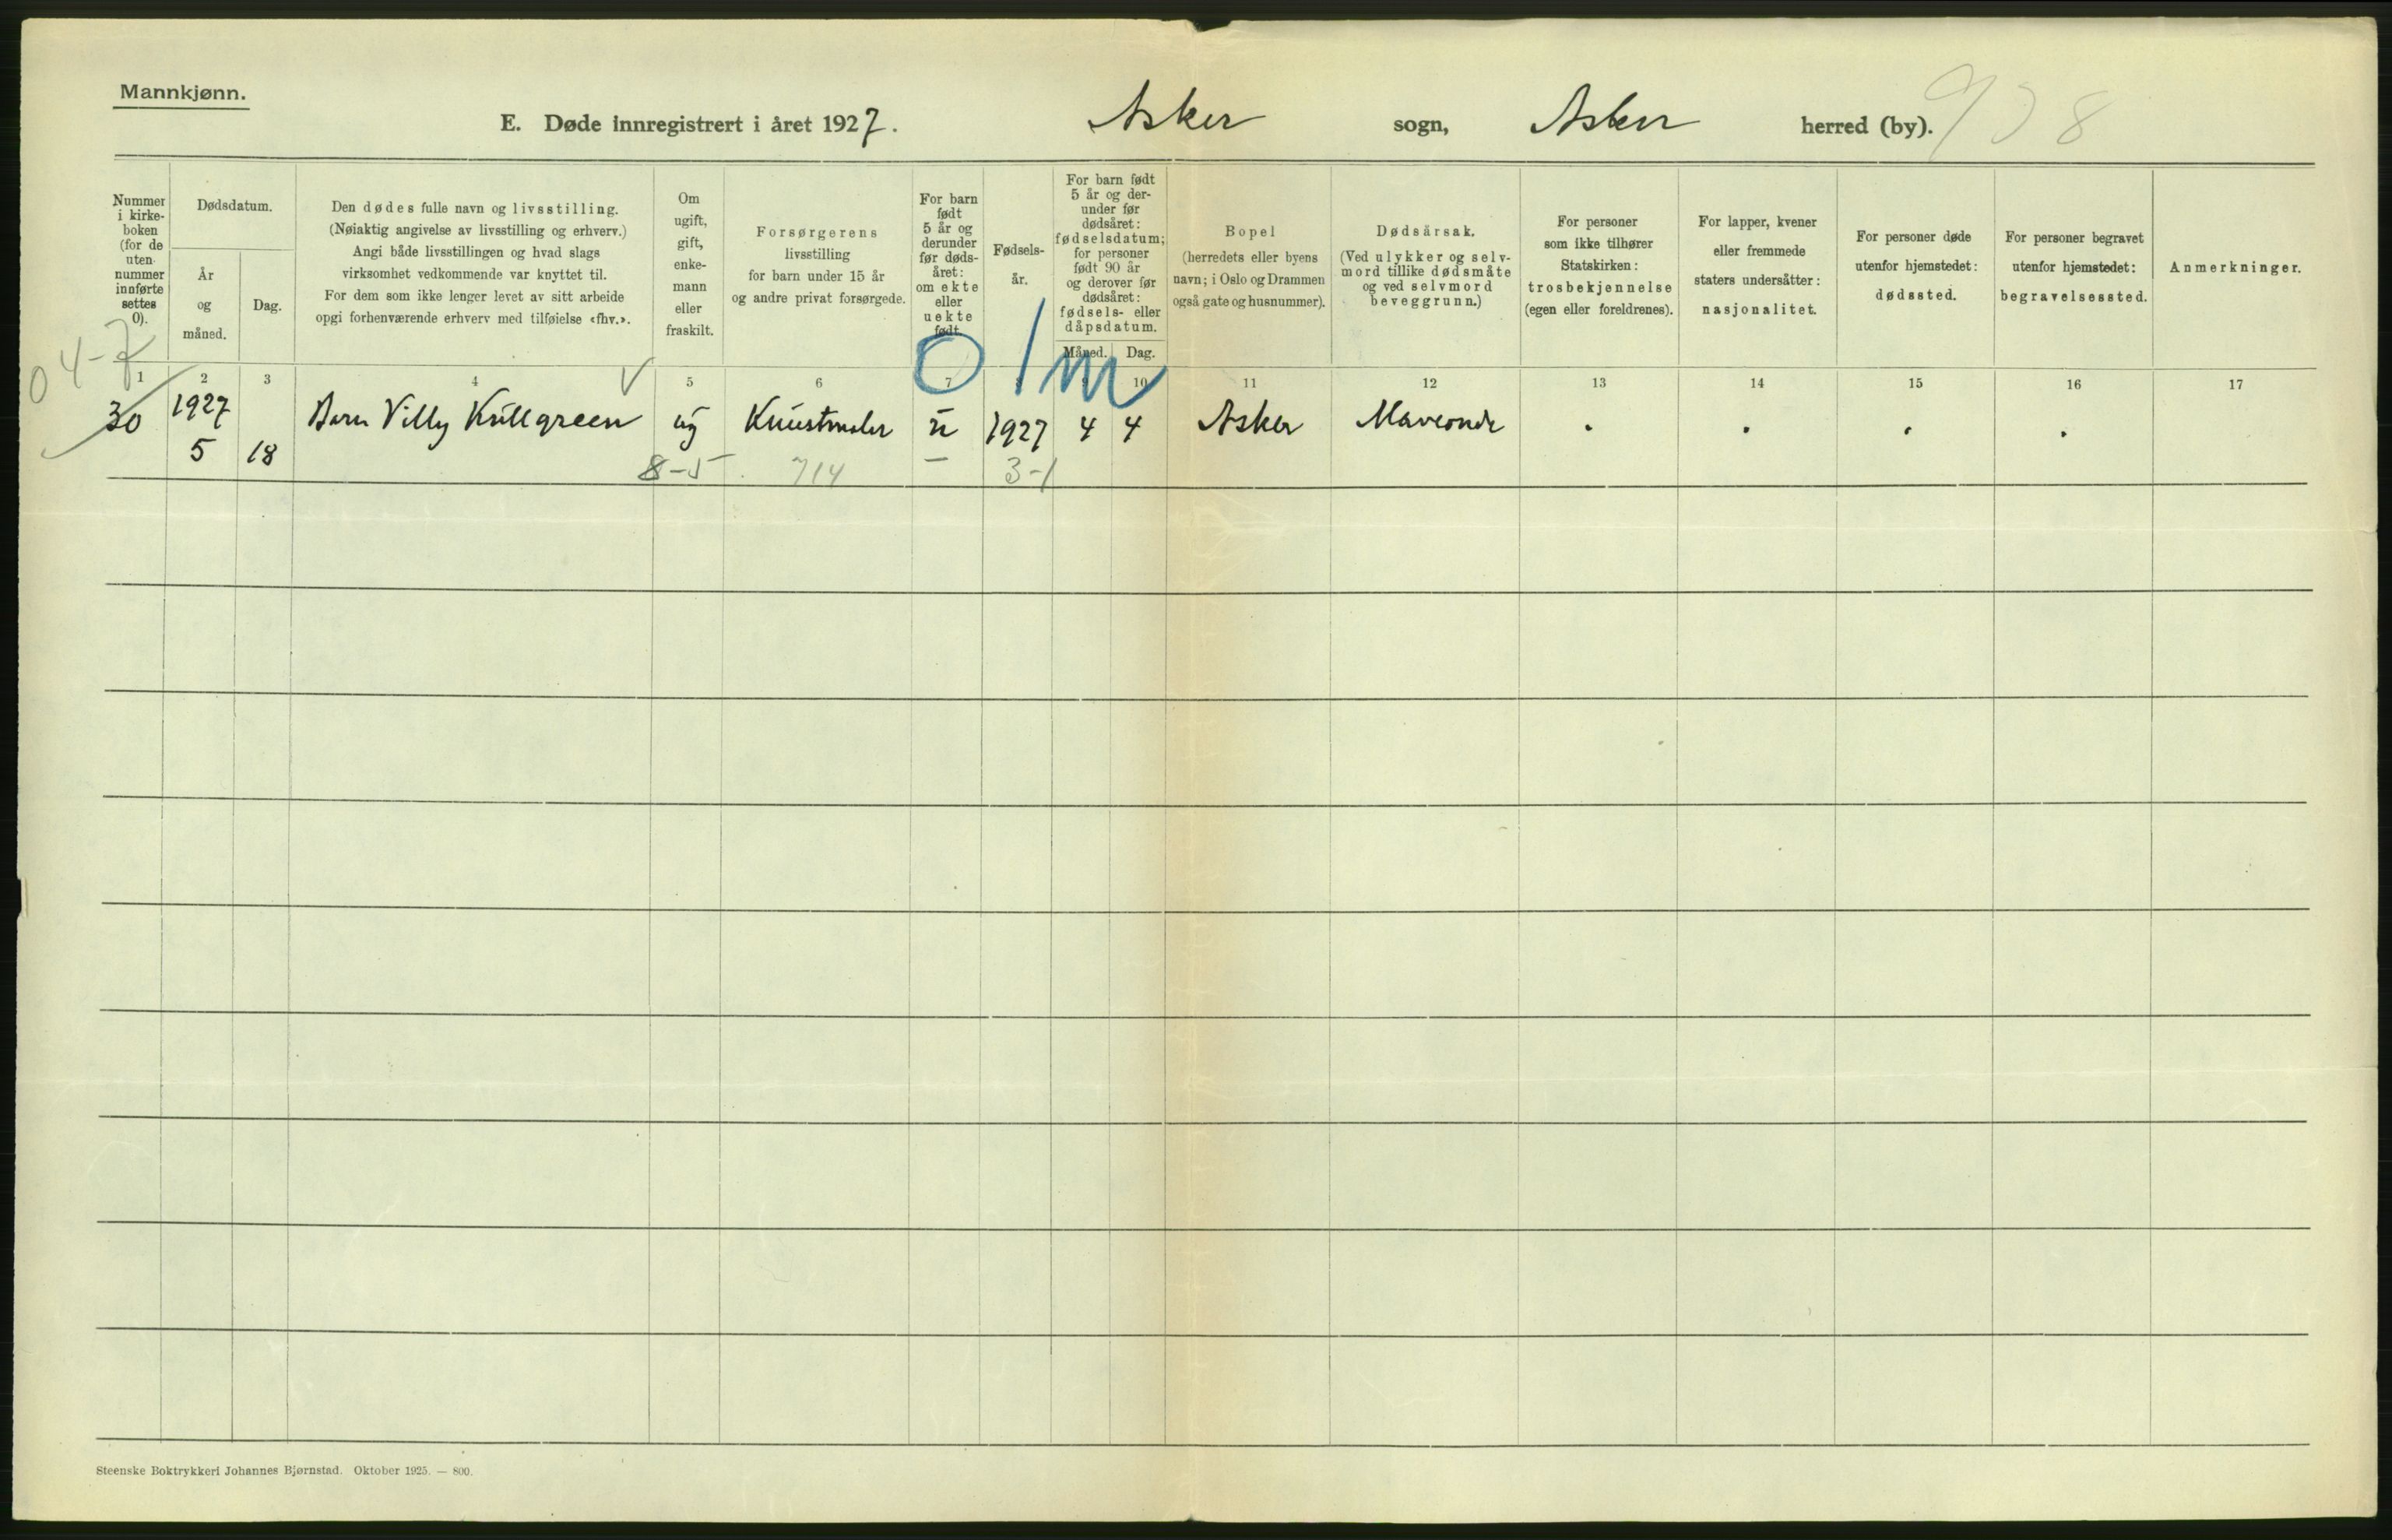 Mannkjønn.
E. Døde innregistrert i året 1927. Asker sogn, Asker herred (by). 938
Nummer i kirke- boken (for de uten nummer innførte settes 0).
Dødsdatum.
År og måned.
Dag.
Den dødes fulle navn og livsstilling.
(Nøiaktig angivelse av livsstilling og erhverv.)
Angi både livsstillingen og hvad slags
virksomhet vedkommende var knyttet til.
For dem som ikke lenger levet av sitt arbeide
opgi forhenværende erhverv med tilføielse «fhv.».
Om
ugift,
gift,
enke-
mann
eller
fraskilt.
Forsørgerens
livsstilling
for barn under 15 år
og andre privat forsørgede.
For barn
født
5 år og
derunder
før døds-
året:
om ekte
eller
uekte
født.
Fødsels-
år.
For barn født
5 år og der-
under før
dødsåret:
fødselsdatum;
for personer
født 90 år
og derover før
dødsåret:
fødsels- eller
dåpsdatum.
Måned. Dag.
Bopel
(herredets eller byens
navn; i Oslo og Drammen
også gate og husnummer).
Dødsårsak.
(Ved ulykker og selv-
mord tillike dødsmåte
og ved selvmord
beveggrunn.)
For personer
som ikke tilhører
Statskirken:
trosbekjennelse
(egen eller foreldrenes).
For lapper, kvener
eller fremmede
staters undersåtter:
nasjonalitet.
For personer døde
utenfor hjemstedet:
dødssted.
For personer begravet
utenfor hjemstedet:
begravelsessted.
Anmerkninger.
04-7
0 1 m
1 2 3 4 5 6 7 8 9 10 11 12 13 14 15 16 17
30 1927 Villy Krillgreen ug Kunstmaler u 1927 4 4 Asker Maveonde
5 18
8-5 714 3-1
Steenske Boktrykkeri Johannes Bjørnstad. Oktober 1925. — 800.